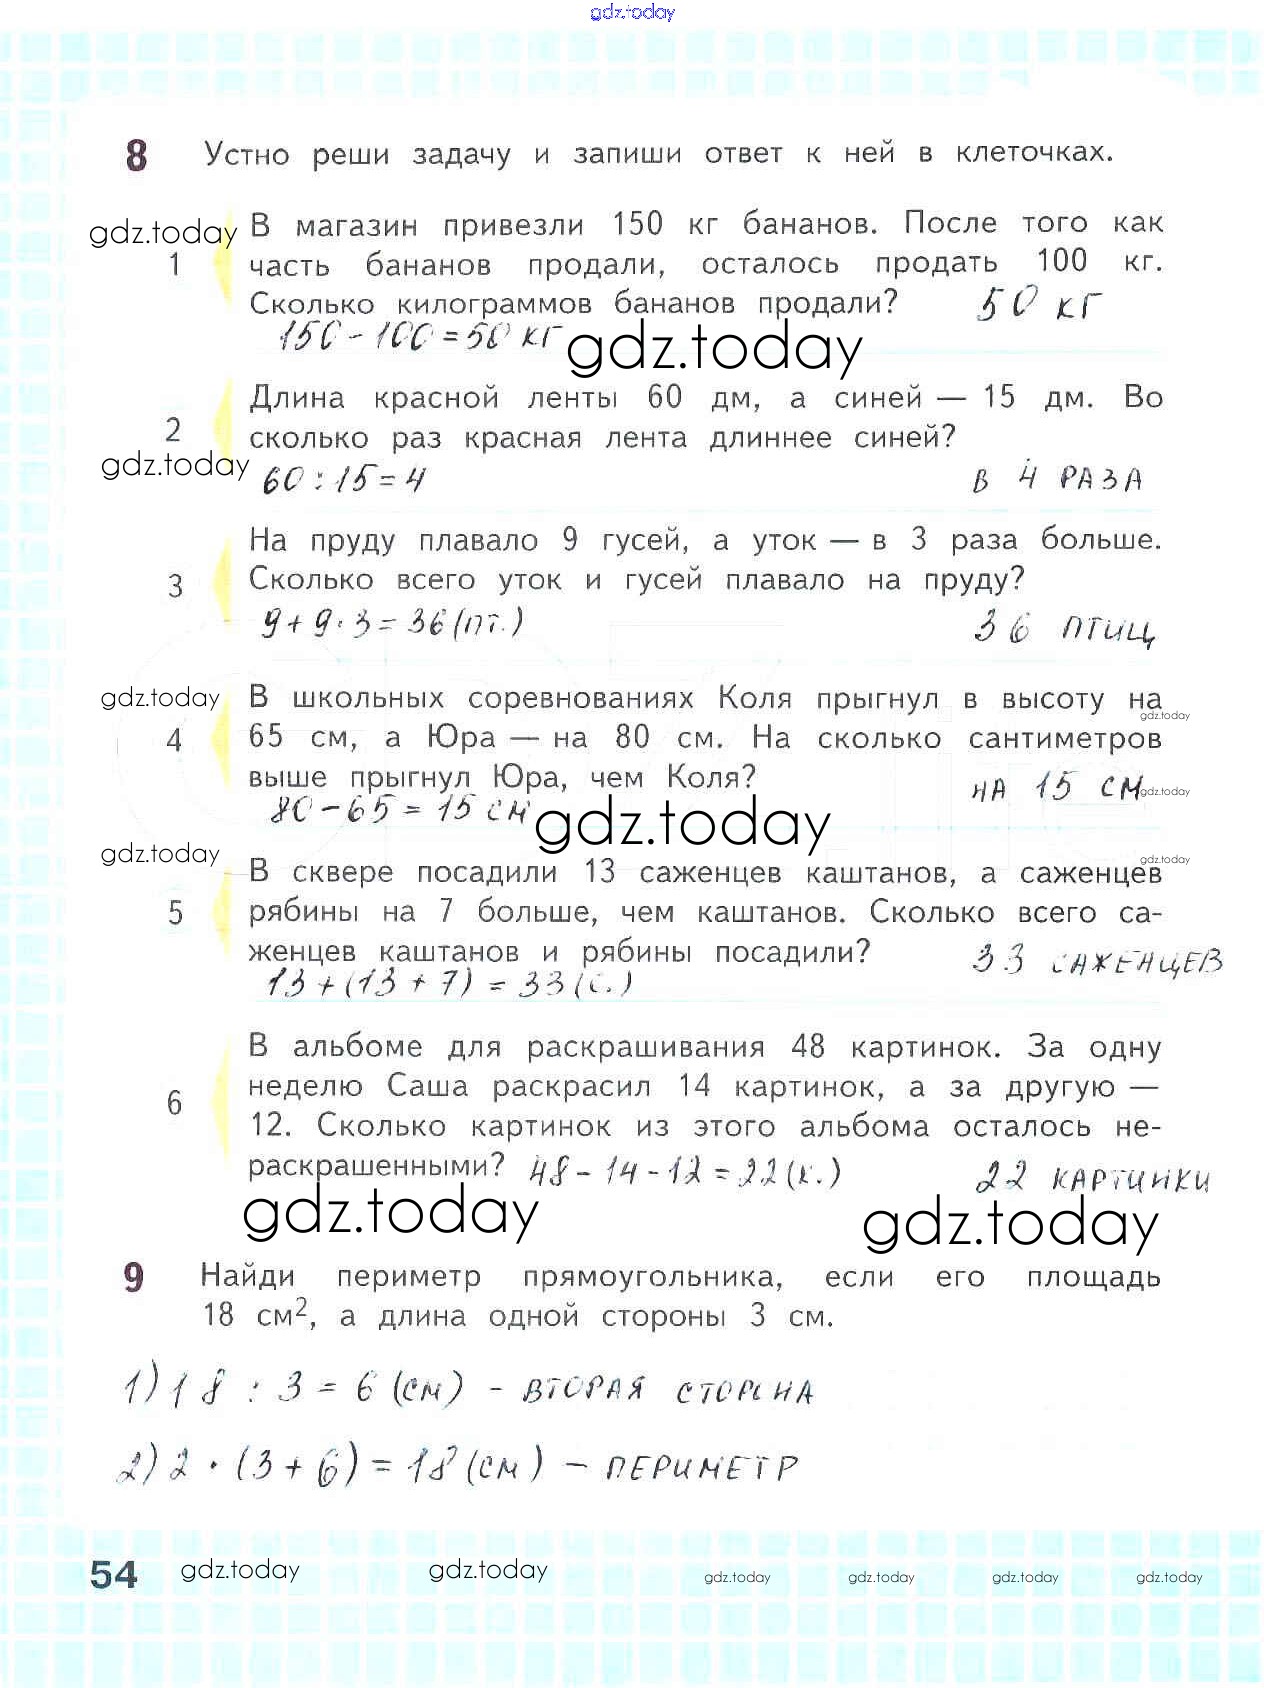 gdz.today
8 Устно реши задачу и запиши ответ к ней в клеточках.
gdz.today
1
В магазин привезли 150 кг бананов. После того как
часть бананов продали, осталось продать 100 кг.
Сколько килограммов бананов продали? 50 кг
150 - 100 = 50 кг
gdz.today
2
Длина красной ленты 60 дм, а синей — 15 дм. Во
сколько раз красная лента длиннее синей?
gdz.today
60 : 15 = 4 В 4 РАЗА
3
На пруду плавало 9 гусей, а уток — в 3 раза больше.
Сколько всего уток и гусей плавало на пруду?
9 + 9 · 3 = 36 (пт.) 36 ПТИЦ
gdz.today
4
В школьных соревнованиях Коля прыгнул в высоту на
gdz.today
65 см, а Юра — на 80 см. На сколько сантиметров
выше прыгнул Юра, чем Коля? НА 15 СМ
gdz.today
80 - 65 = 15 см
gdz.today
gdz.today
gdz.today
5
В сквере посадили 13 саженцев каштанов, а саженцев
рябины на 7 больше, чем каштанов. Сколько всего са-
женцев каштанов и рябины посадили? 33 САЖЕНЦЕВ
13 + (13 + 7) = 33 (с.)
6
В альбоме для раскрашивания 48 картинок. За одну
неделю Саша раскрасил 14 картинок, а за другую —
12. Сколько картинок из этого альбома осталось не-
раскрашенными? 48 - 14 - 12 = 22 (к.) 22 КАРТИНКИ
gdz.today
gdz.today
9 Найди периметр прямоугольника, если его площадь
18 см², а длина одной стороны 3 см.
1) 18 : 3 = 6 (см) - ВТОРАЯ СТОРОНА
2) 2 · (3 + 6) = 18 (см) - ПЕРИМЕТР
54
gdz.today
gdz.today
gdz.today
gdz.today
gdz.today
gdz.today